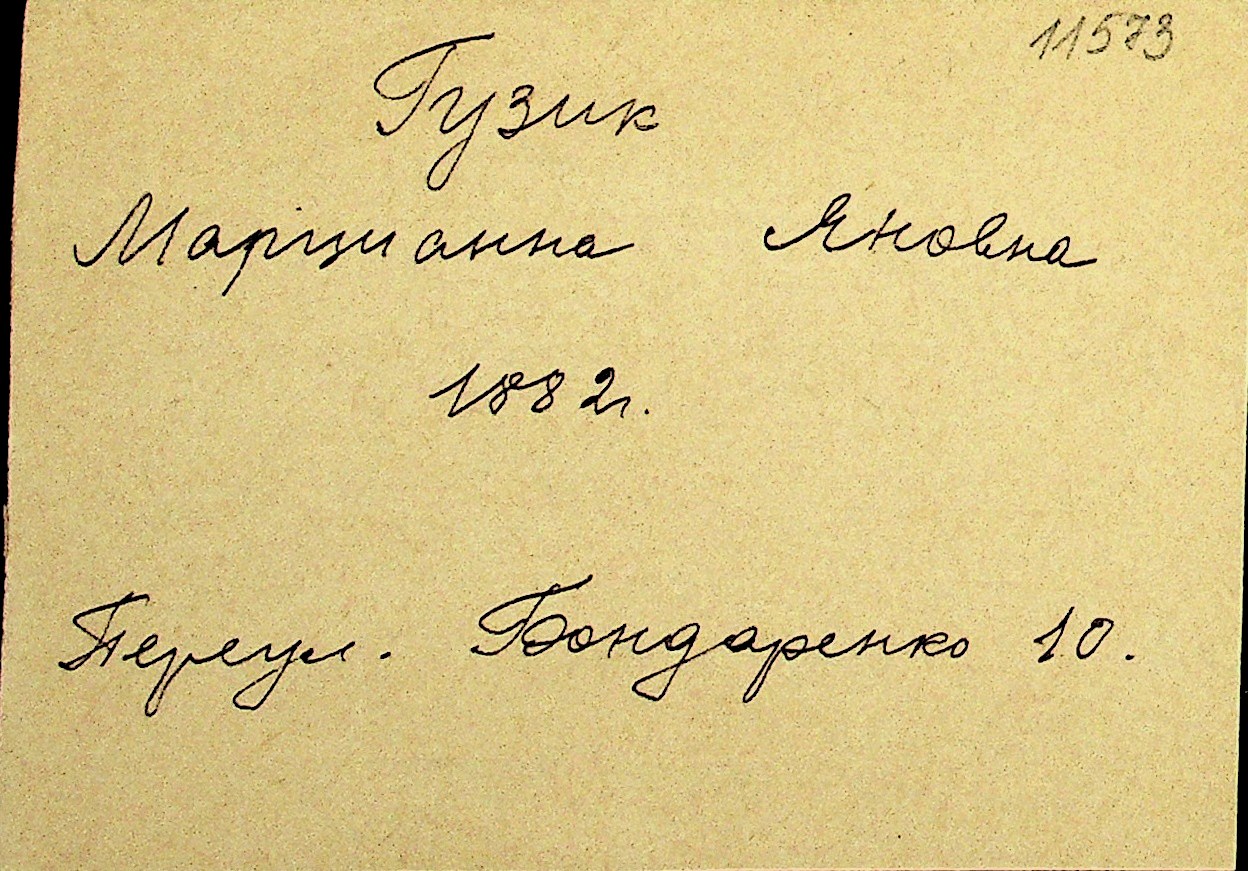 11573
Гузик
Марцианна Яновна
1882г.
Переул. Бондаренко 10.